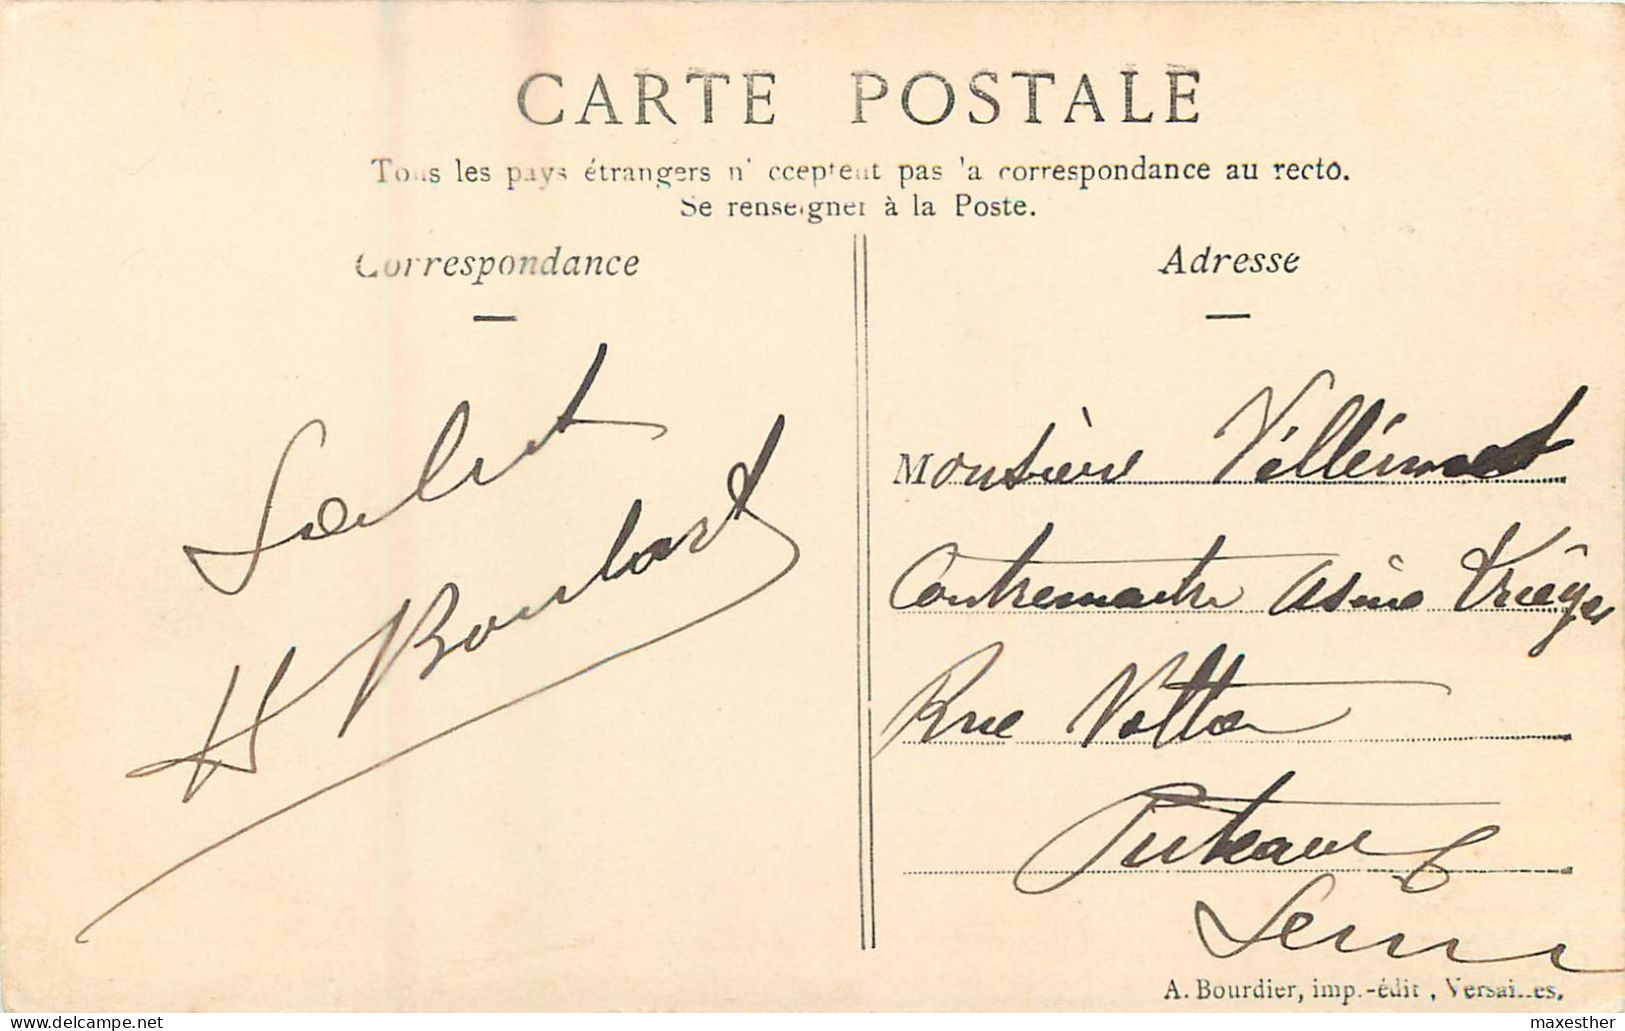 CARTE POSTALE
Tous les pays étrangers n' cceptent pas 'a correspondance au recto.
Se renseigner à la Poste.
Correspondance
Salut
H Boulard
Adresse
Monsieur Villémot
Contremaitre Usine Kriéger
Rue Volta
Puteaux
Seine
A. Bourdier, imp.-édit, Versailles.
maxesther